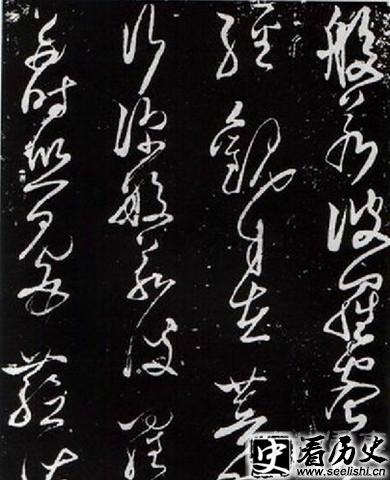 般若波羅蜜
經觀自在菩
行深般若波羅
多時照見五蘊皆
史 看历史
www.seelishi.cn